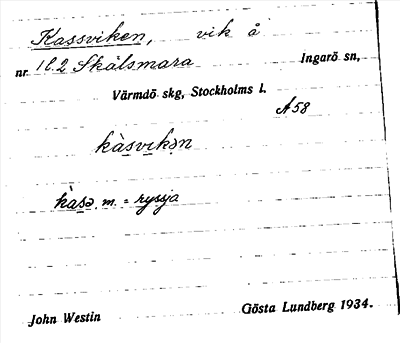 Kassviken, vik å
nr 1 l. 2 Skälsmara Ingarö sn,
Värmdö skg, Stockholms l.
A 58
kàsvikən
kàsə m. = ryssja
John Westin Gösta Lundberg 1934.